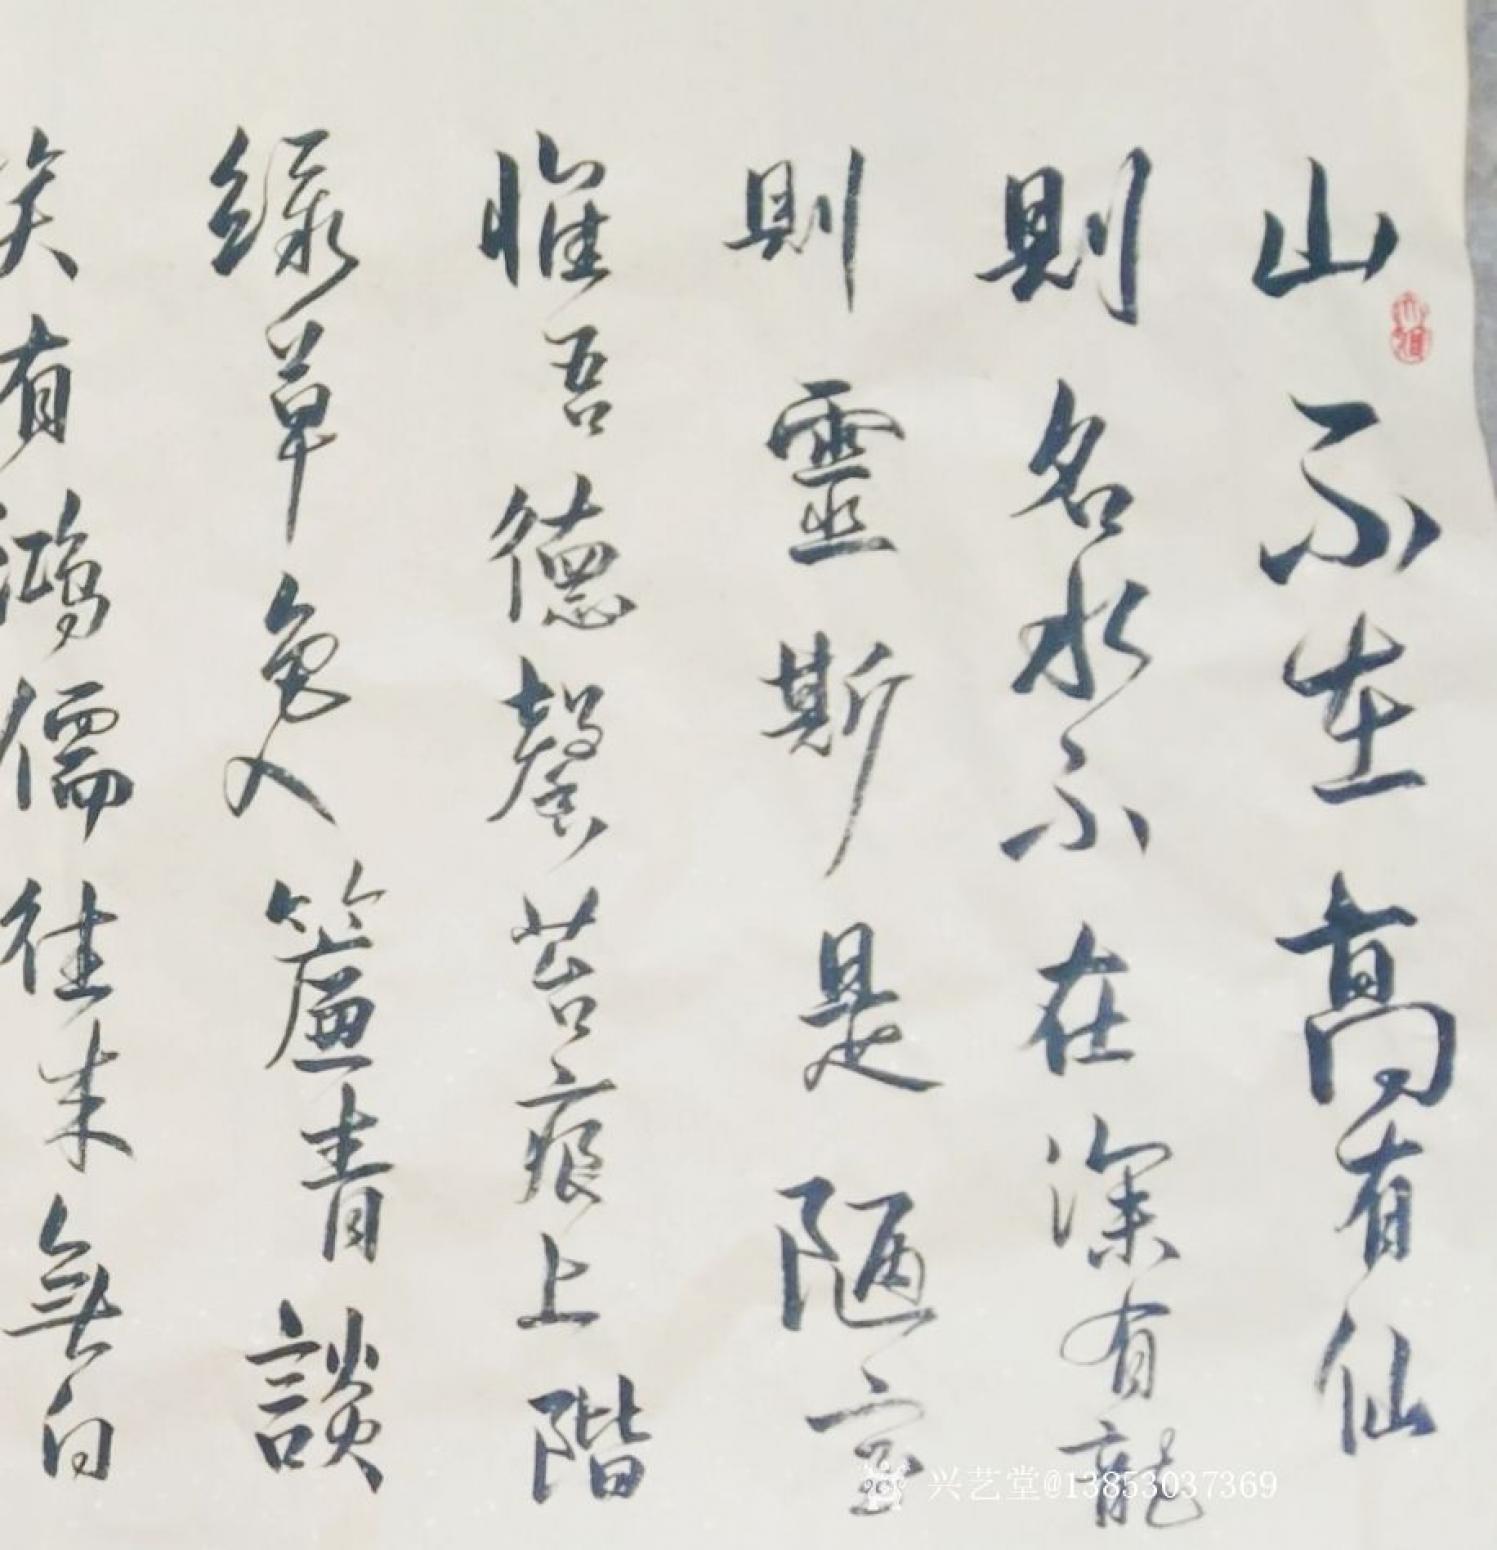 山不在高有仙
則名水不在深有龍
則靈斯是陋室
惟吾德馨苔痕上階
綠草色入簾青談
笑有鴻儒往來無白
兴艺堂@13853037369